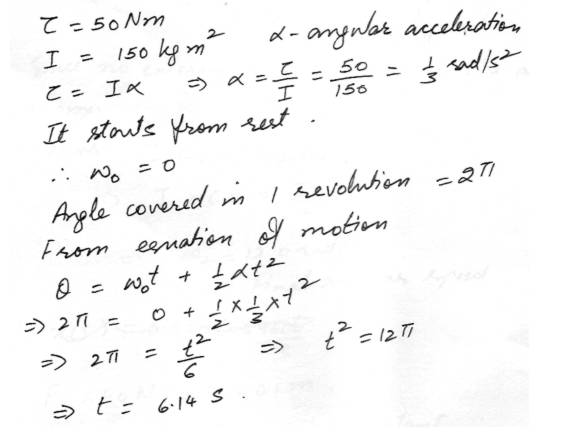 τ = 50 Nm
I = 150 kg m² α - angular acceleration
τ = Iα ⇒ α = τ/I = 50/150 = 1/3 rad/s²
It starts from rest.
∴ ω₀ = 0
Angle covered in 1 revolution = 2π
From equation of motion
θ = ω₀t + 1/2 αt²
⇒ 2π = 0 + 1/2 × 1/3 × t²
⇒ 2π = t²/6 ⇒ t² = 12π
⇒ t = 6.14 s.